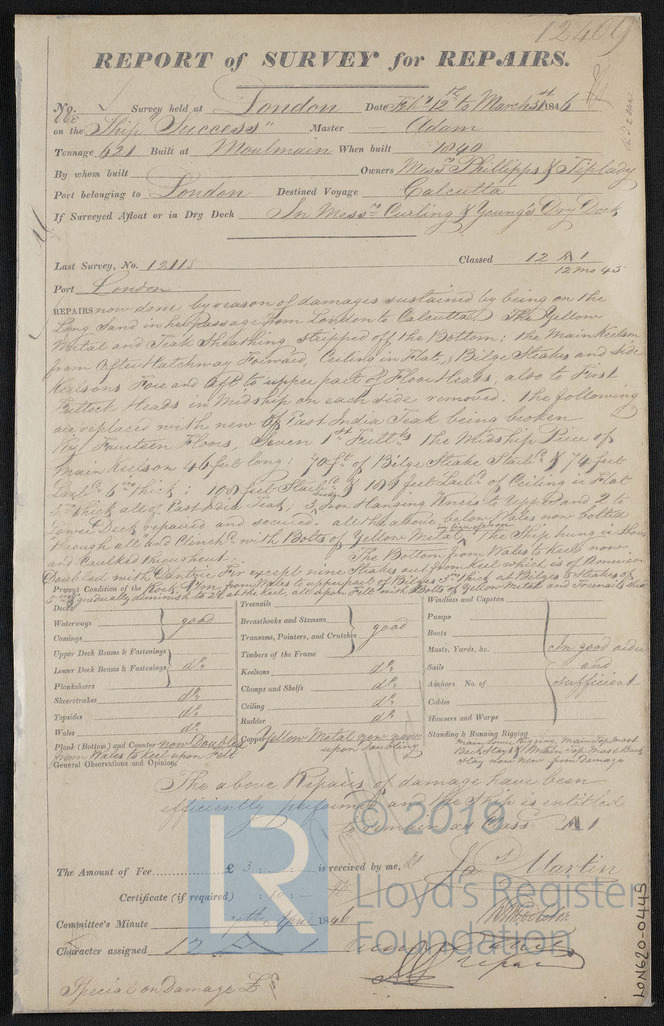 12409
REPORT of SURVEY for REPAIRS.
No. Survey held at London Date Feby 12th to March 31st 1846
on the Ship "Success" Master Adam
Tonnage 621 Built at Moulmain When built 1840
By whom built Owners Messrs Phillipps & Tiplady
Port belonging to London Destined Voyage Calcutta
If Surveyed Afloat or in Dry Dock In Messrs Curling & Young's Dry Dock
Last Survey, No. 12118 Classed 12 A 1
12 mo 45
Port London
REPAIRS now done by reason of damages sustained by being on the
Long Sand in her passage from London to Calcutta. The Yellow
Metal and Teak Sheathing stripped off the Bottom; the Main Keelson
from After Hatchway Forward, Ceiling in Flat, Bilge Steakes and side
Keelsons Fore and Aft to upper part of Floor Heads, also to First
Futtock Heads in Midship on each side removed. the following
are replaced with new of East India Teak being broken
Viz. Fourteen Floors, Seven 1st Futtks the Midship Piece of
Main Keelson 46 feet long; 70 ft of Bilge Steake Starbd & 74 feet
Larbd 6 in thick; 100 feet Starbd & 106 feet Larbd of Ceiling in Flat
thick all of East India Teak, 3 Iron Hanging Knees to Upper and 2 to
Lower Deck repaired and secured, all the above below Wales now bolted
through all and Clench'd with Bolts of Yellow Metal The Ship hung in Shores
and Caulked throughout. The Bottom from Wales to Keel now
Doubled with Dantzic Fir except nine Steakes out from keel which is of American
Rock Elm, from Wales to upper part of Bilges 3 in thick at Bilges 5 Steakes of
gradually diminish to 2½ at the keel, all upon Felt with Bolts of Yellow Metal and Treenails
Present Condition of the
Decks
Waterways good
Comings
Upper Deck Beams & Fastenings
Lower Deck Beams & Fastenings do
Planksheers
Sheerstrakes do
Topsides do
Wales do
Plank (Bottom) and Counter now Doubled
from Wales to Keel upon Felt
Treenails
Breasthooks and Stemson
Transoms, Pointers, and Crutches good
Timbers of the Frame
Keelsons do
Clamps and Shelfs do
Ceiling do
Rudder do
Copper Yellow Metal now new
upon doubling
Windlass and Capstan
Pumps
Boats
Masts, Yards, &c. In good order
Sails and
Anchors No. of sufficient
Cables
Hawsers and Warps
Standing & Running Rigging
Main Lower Rigging, Main Top Mast
Back Stays & Main Top Mast Back
Stay now new from Damage
General Observations and Opinion,
The above Repairs of damage have been
efficiently performed and the Ship is entitled
to remain as Class A 1
The Amount of Fee £ 3 is received by me,
Jas Martin
Certificate (if required)
Committee's Minute 7th April 1846
Character assigned 12 A 1
Special on Damage £5
LR
© 2019
Lloyd's Register
Foundation
LON620-0445